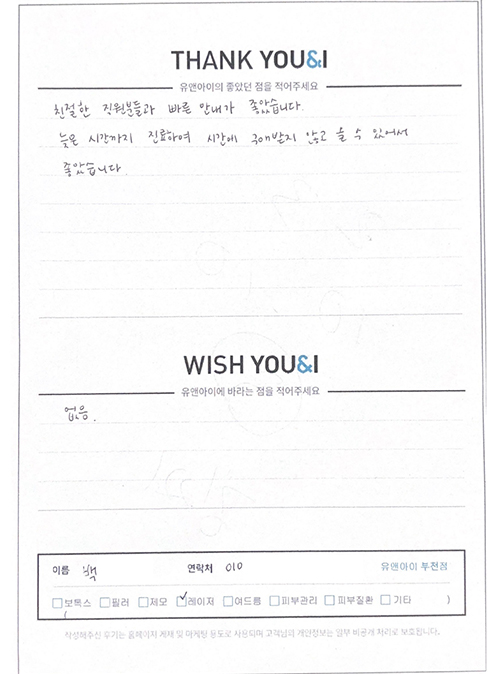 THANK YOU&I
유앤아이의 좋았던 점을 적어주세요
친절한 직원분들과 빠른 안내가 좋았습니다.
늦은 시간까지 진료하여 시간에 구애받지 않고 올 수 있어서
좋았습니다.
WISH YOU&I
유앤아이에 바라는 점을 적어주세요
없음.
이름 백 연락처 010 유앤아이 부전점
보톡스 필러 제모 레이저 여드름 피부관리 피부질환 기타 )
(
작성해주신 후기는 홈페이지 게재 및 마케팅 용도로 사용되며 고객님의 개인정보는 일부 비공개 처리로 보호됩니다.